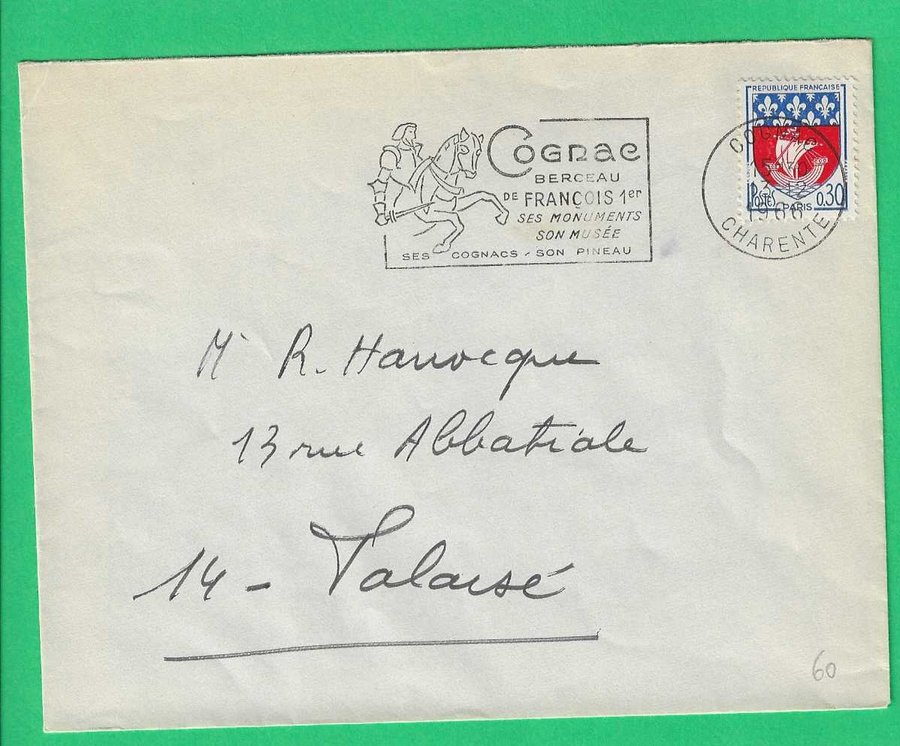 COGNAC
BERCEAU
DE FRANÇOIS 1er
SES MONUMENTS
SON MUSÉE
SES COGNACS - SON PINEAU
REPUBLIQUE FRANÇAISE
POSTES PARIS 0.30
COGNAC
1966
CHARENTE
Mr R. Harrocque
13 rue Abbatiale
14 - Falaise
60